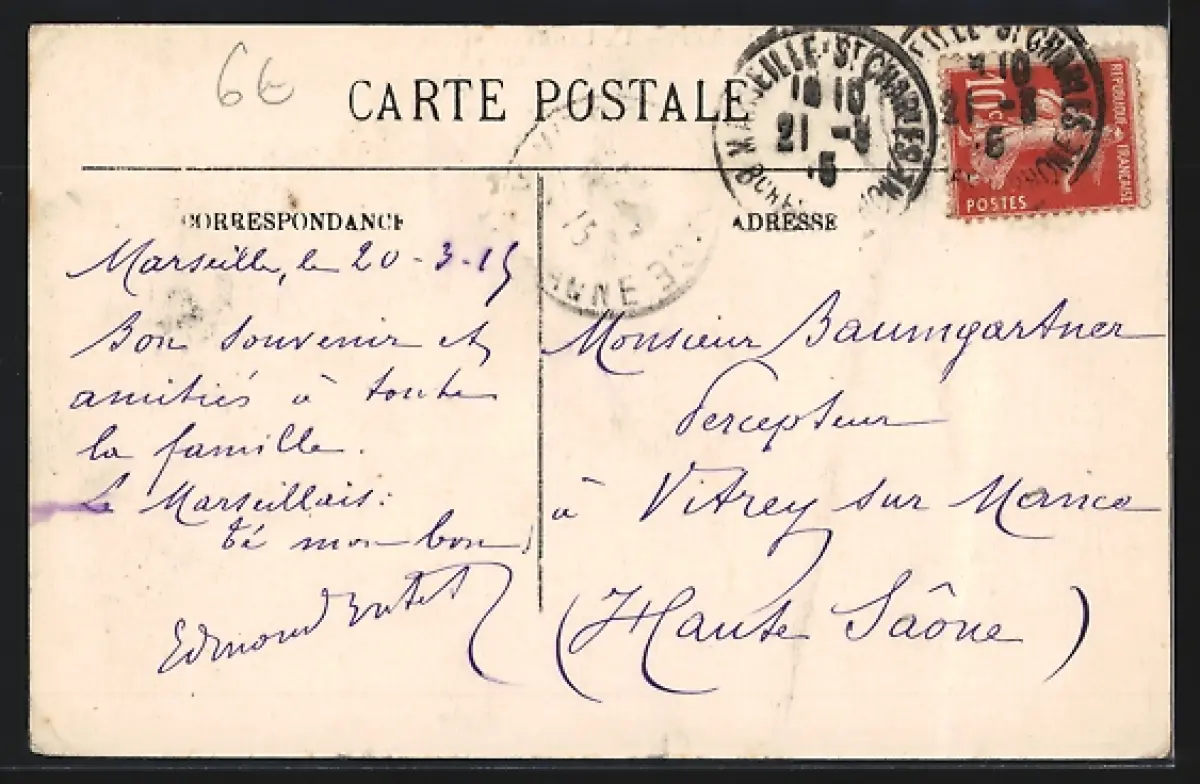 6€
CARTE POSTALE
MARSEILLE-ST CHARLES
18 10
21 -3
15
10c
REPUBLIQUE FRANÇAISE
POSTES
CORRESPONDANCE
ADRESSE
Marseille, le 20-3-15
Bon souvenir et
amitiés à toute
la famille.
Le Marseillais:
té mon bon!
Edmond
Monsieur Baumgartner
Percepteur
à Vitrey sur Mance
(Haute Saône)